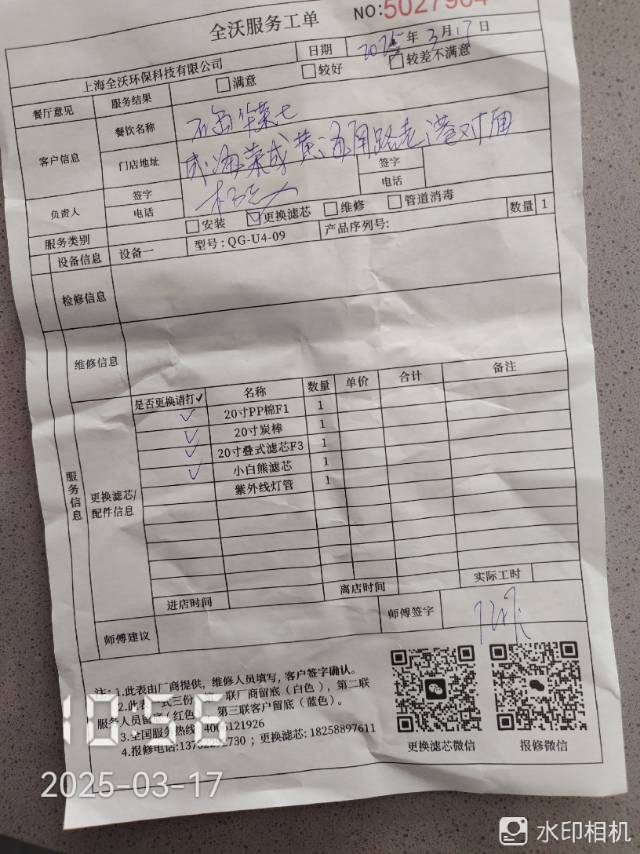 全沃服务工单
NO:5027904
上海全沃环保科技有限公司 日期 2025年3月17日
餐厅意见 服务结果 满意 较好 较差不满意
客户信息 餐饮名称
门店地址
负责人 签字 签字
电话 电话
服务类别 安装 更换滤芯 维修 管道消毒
设备信息 设备一 型号:QG-U4-09 产品序列号: 数量 1
检修信息
维修信息
服务信息 更换滤芯/配件信息
是否更换请打✓ 名称 数量 单价 合计 备注
✓ 20寸PP棉F1 1
✓ 20寸炭棒 1
✓ 20寸叠式滤芯F3 1
✓ 小白熊滤芯 1
紫外线灯管 1
进店时间 离店时间 实际工时
师傅建议 师傅签字
注:1.此表由厂商提供,维修人员填写,客户签字确认。
2.此表一式三份 联厂商留底(白色),第二联
服务人员留底(红色 第三联客户留底(蓝色)。
3.全国服务热线
4.报修电话: ;更换滤芯:18258897611
更换滤芯微信 报修微信
10:56
2025-03-17
水印相机